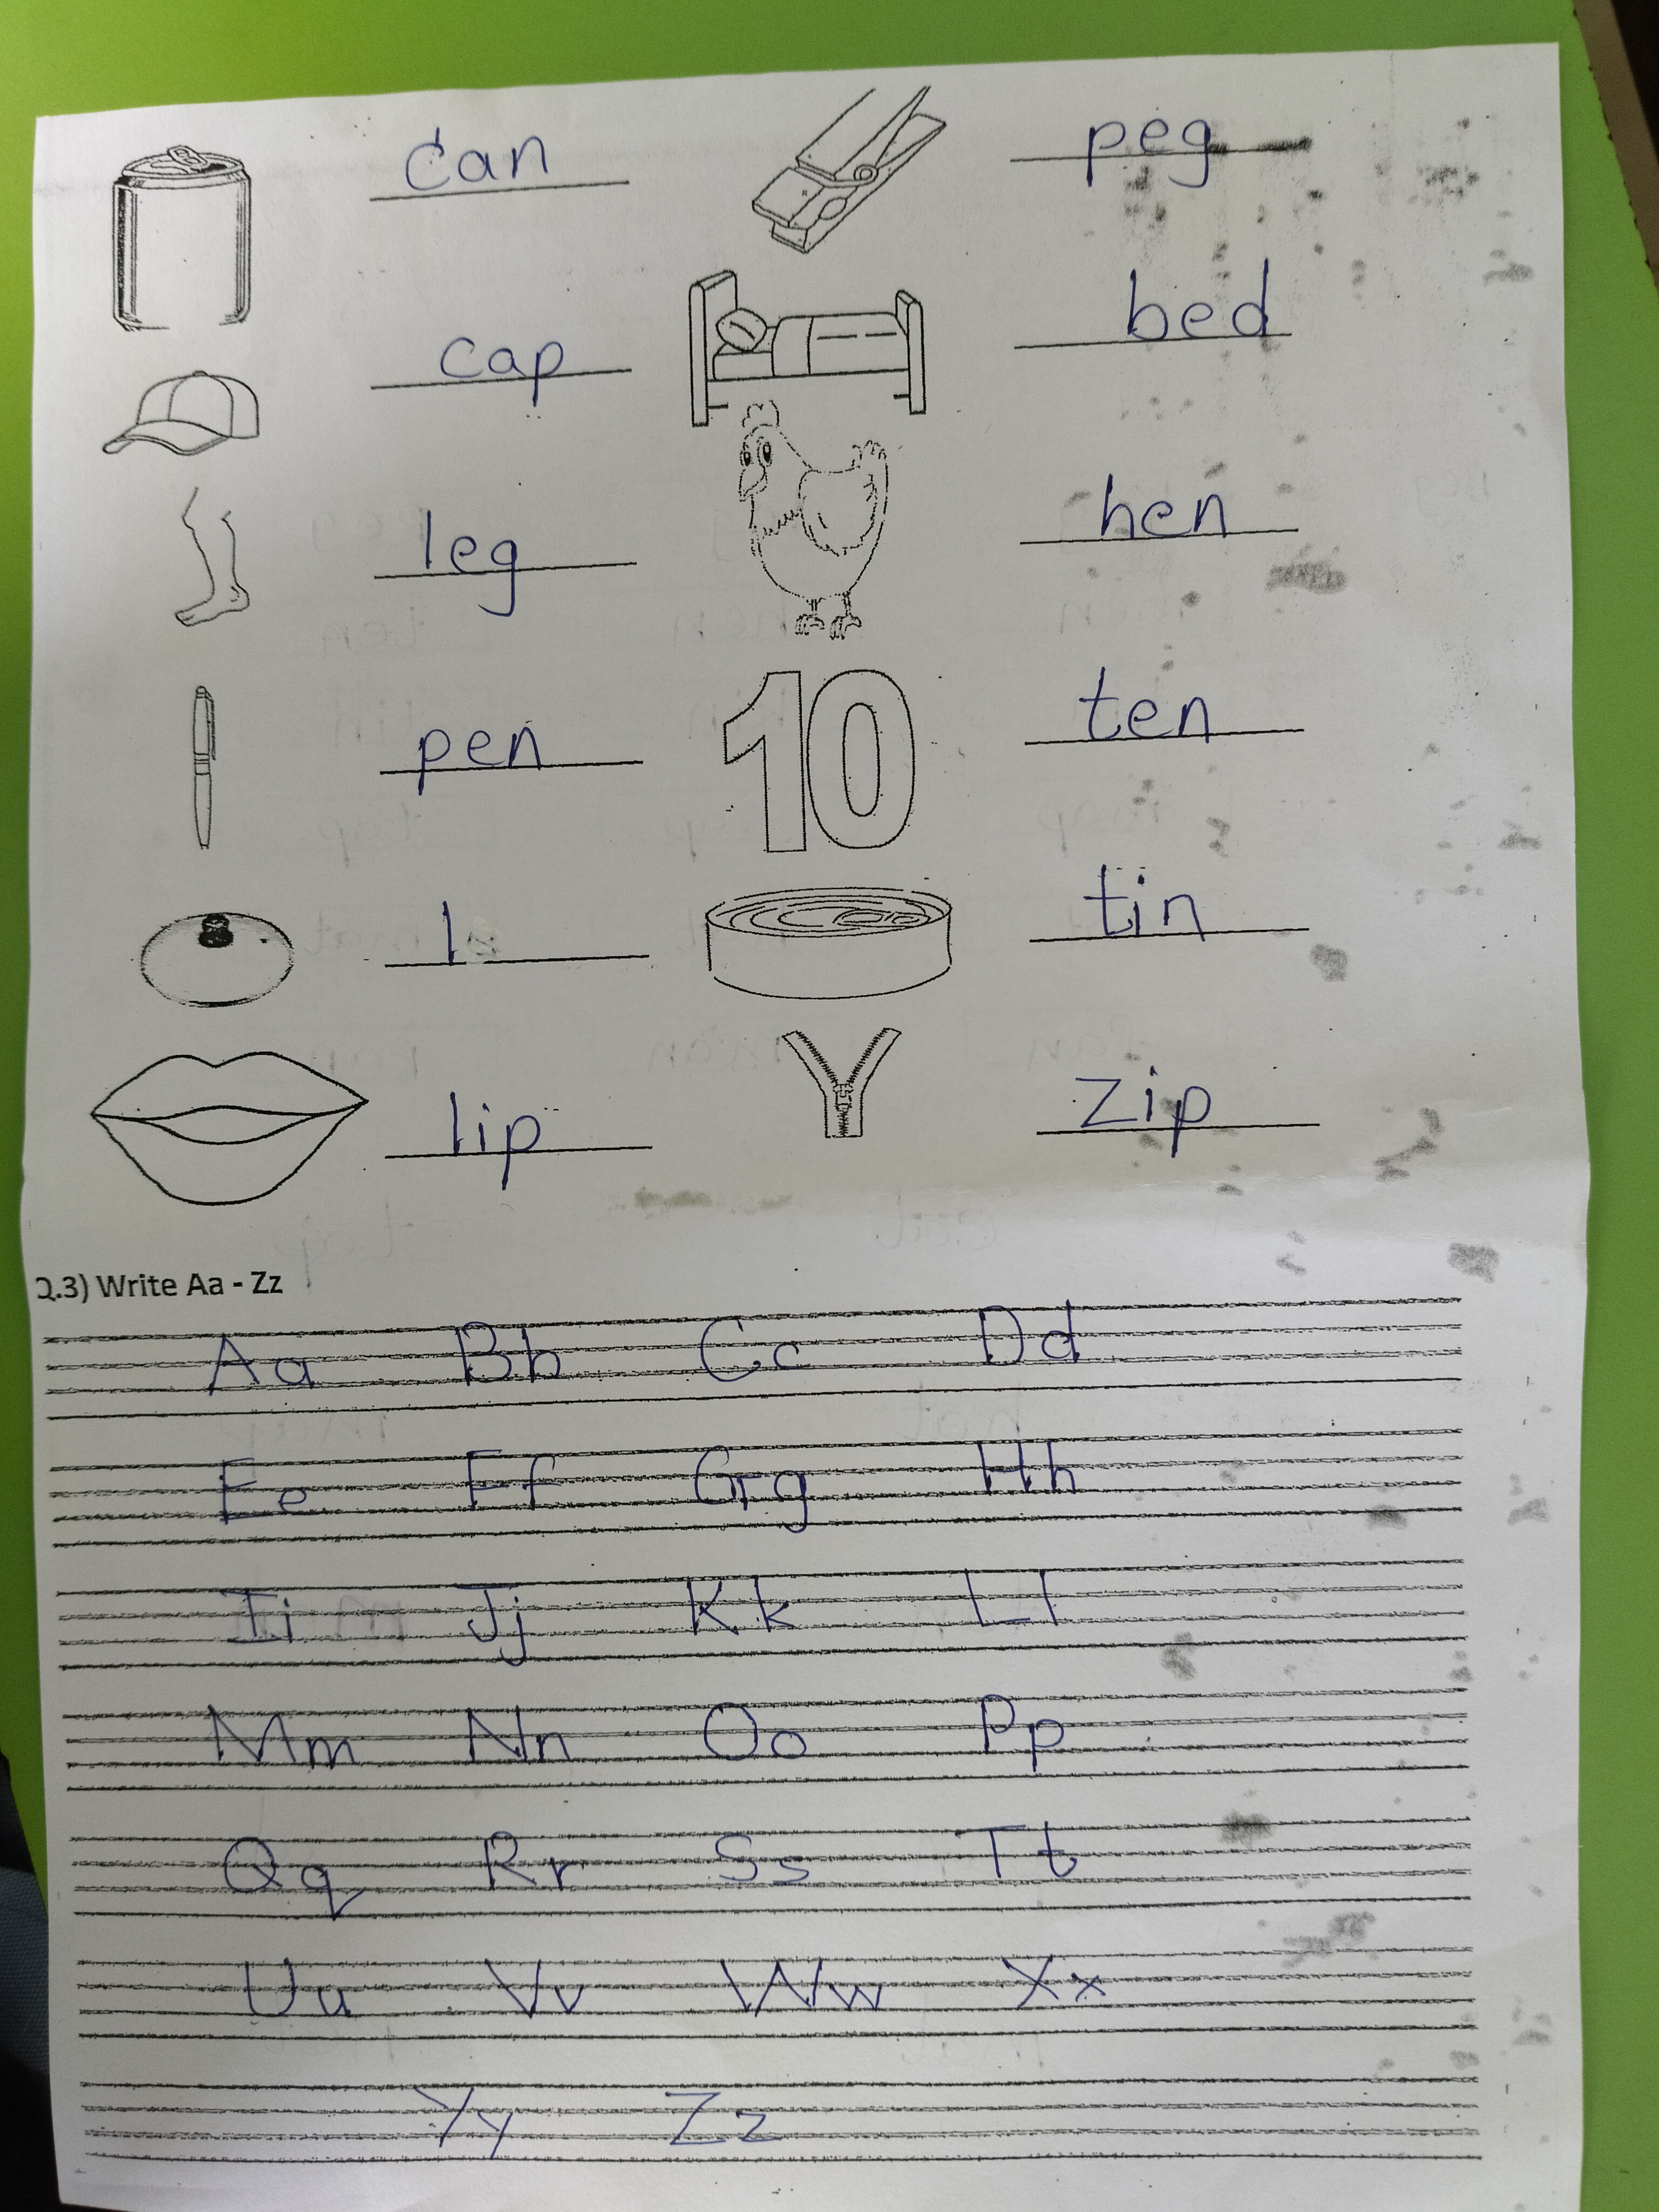 can peg
cap bed
leg hen
pen 10 ten
l tin
lip zip
Q.3) Write Aa - Zz
Aa Bb Cc Dd
Ee Ff Gg Hh
Ii Jj Kk Ll
Mm Nn Oo Pp
Qq Rr Ss Tt
Uu Vv Ww Xx
Yy Zz